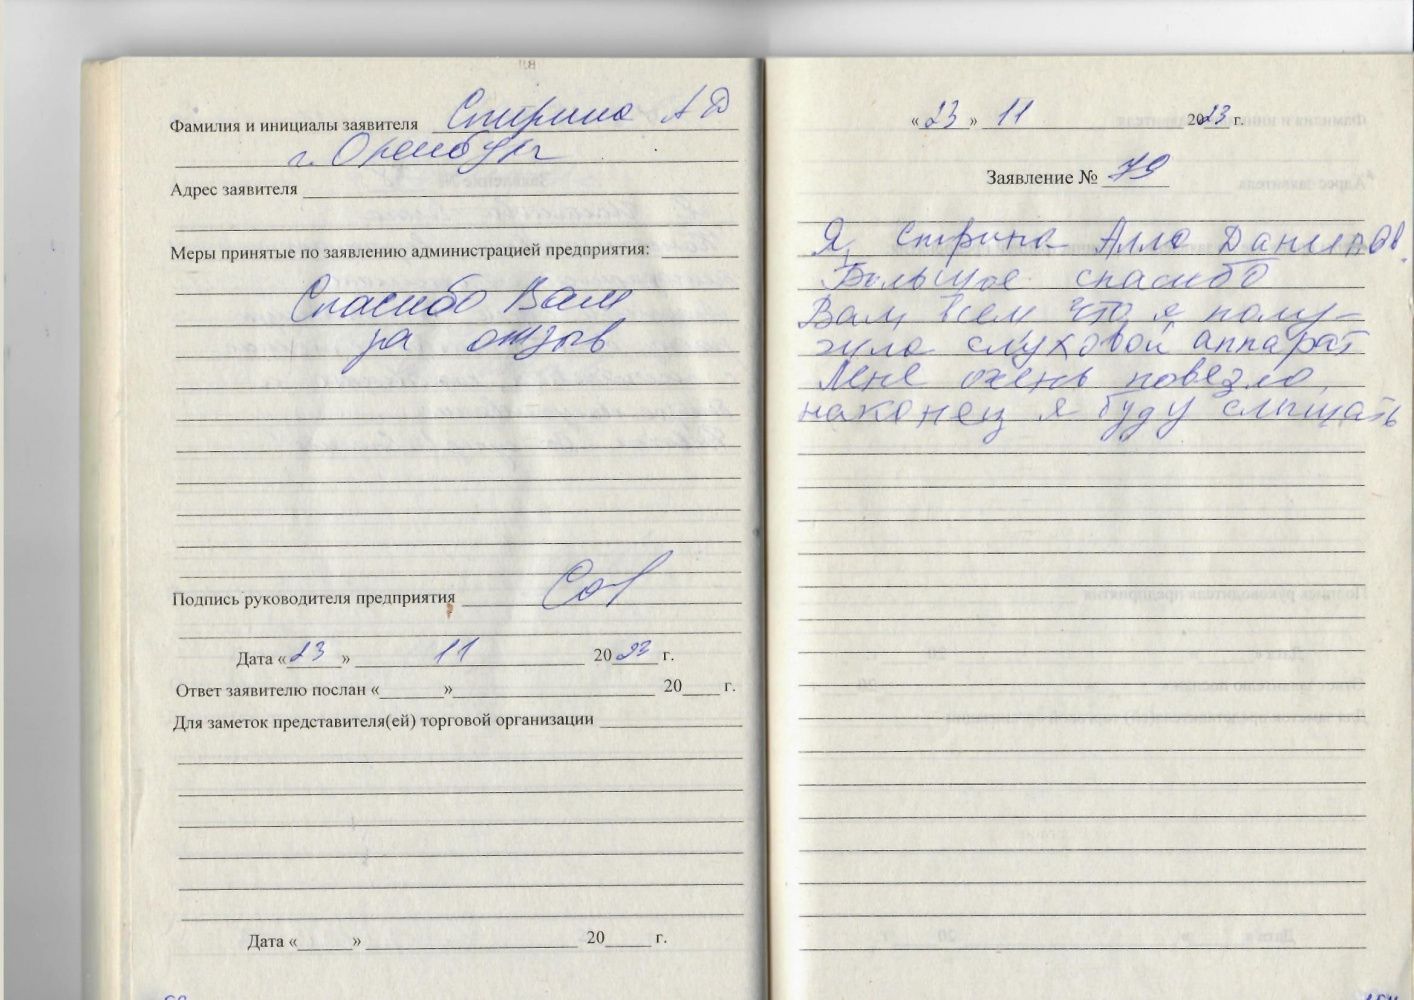 Фамилия и инициалы заявителя Стрина А Д
г. Оренбург
Адрес заявителя
Меры принятые по заявлению администрацией предприятия:
Спасибо Вам
за отзыв
Подпись руководителя предприятия
Дата «23» 11 2023 г.
Ответ заявителю послан « » 20 г.
Для заметок представителя(ей) торговой организации
Дата « » 20 г.
«23» 11 2023 г.
Заявление № 79
Я, Стрина Алла Данилов.
Большое спасибо
Вам всем что я полу-
чила слуховой аппарат
Мне очень повезло,
наконец я буду слышать